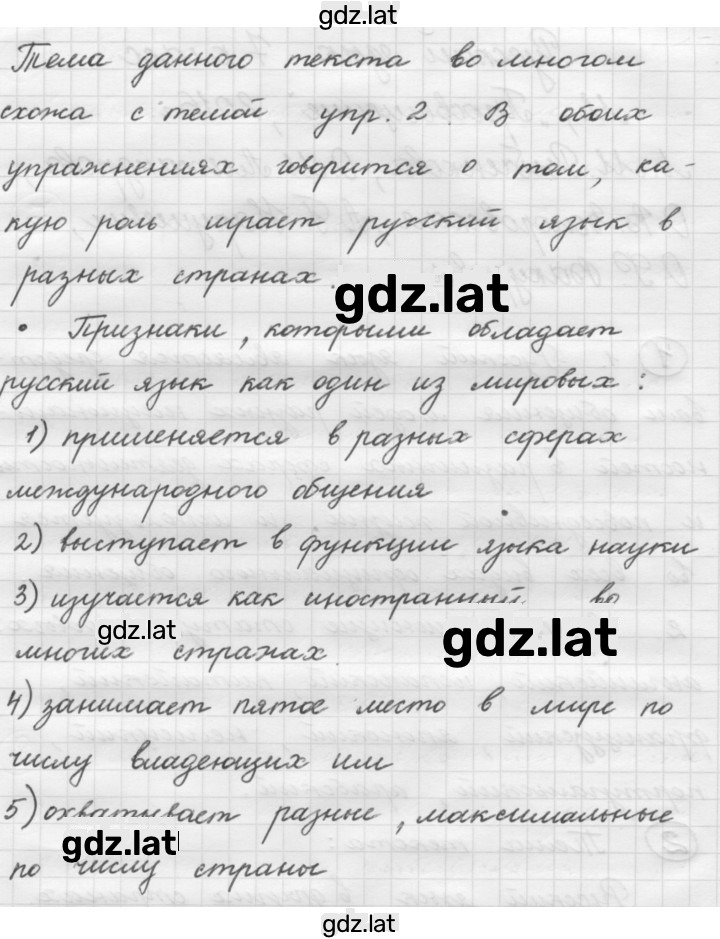 gdz.lat
Тема данного текста во многом
схожа с темой упр. 2. В обоих
упражнениях говорится о том, ка-
кую роль играет русский язык в
разных странах.
gdz.lat
• Признаки, которыми обладает
русский язык как один из мировых:
1) применяется в разных сферах
международного общения
2) выступает в функции языка науки
3) изучается как иностранный во
gdz.lat
gdz.lat
многих странах
4) занимает пятое место в мире по
числу владеющих им
5) охватывает разные, максимальные
gdz.lat
по числу страны
gdz.lat